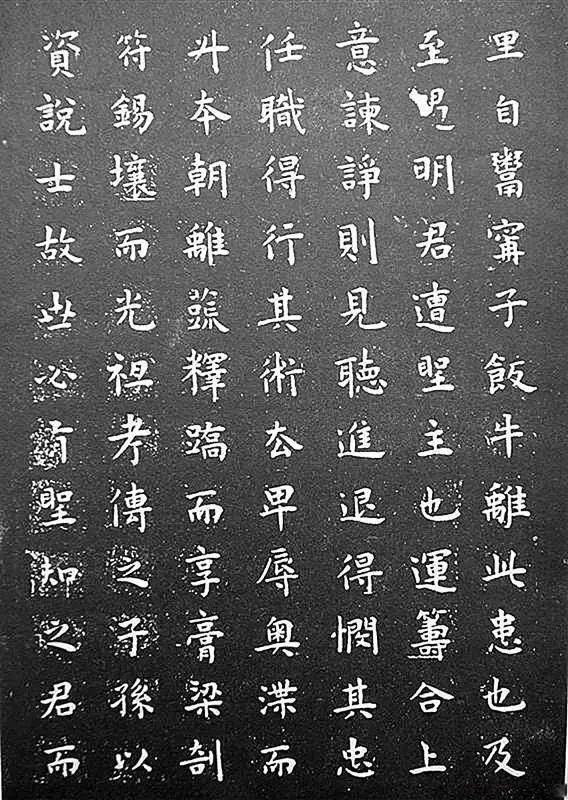 里自鬻甯子飯牛離此患也及
至明君遭聖主也運籌合上
意諫諍則見聽進退得憫其忠
任職得行其術去卑辱奥渫而
升本朝離蔬釋蹻而享膏梁剖
符錫壤而光祖考傳之子孫以
資說士故世必有聖知之君而